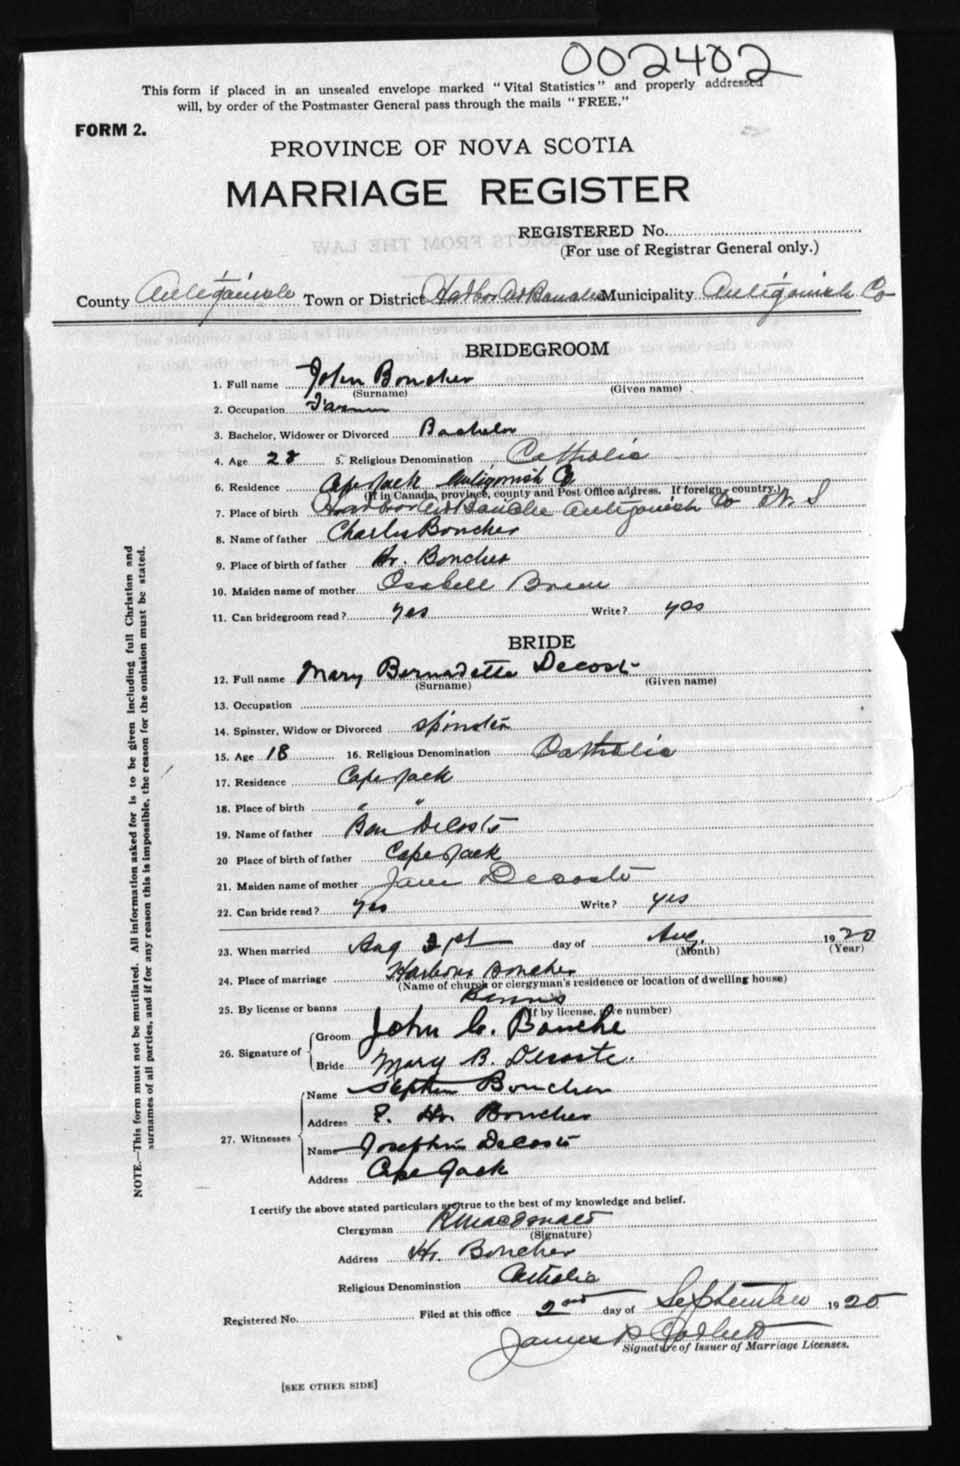 002402
This form if placed in an unsealed envelope marked "Vital Statistics" and properly addressed
will, by order of the Postmaster General pass through the mails "FREE."
FORM 2.
PROVINCE OF NOVA SCOTIA
MARRIAGE REGISTER
REGISTERED No.
(For use of Registrar General only.)
County Antigonish Town or District Harbor Au Bouche Municipality Antigonish Co
BRIDEGROOM
1. Full name John Boucher
(Surname) (Given name)
2. Occupation Farmer
3. Bachelor, Widower or Divorced Bachelor
4. Age 28 5. Religious Denomination Catholic
6. Residence Cape Jack Antigonish Co
(If in Canada, province, county and Post Office address. If foreign, country.)
7. Place of birth Harbor Au Bouche Antigonish Co N. S
8. Name of father Charles Boucher
9. Place of birth of father Hr. Boucher
10. Maiden name of mother
11. Can bridegroom read? yes Write? yes
BRIDE
12. Full name Mary Bernadette Decoste
(Surname) (Given name)
13. Occupation
14. Spinster, Widow or Divorced Spinster
15. Age 18 16. Religious Denomination Catholic
17. Residence Cape Jack
18. Place of birth " "
19. Name of father Ben DeCoste
20 Place of birth of father Cape Jack
21. Maiden name of mother Jane Decoste
22. Can bride read? yes Write? yes
23. When married Aug 31st day of Aug. 1920
(Month) (Year)
24. Place of marriage Harbour Boucher
(Name of church or clergyman's residence or location of dwelling house)
25. By license or banns Banns
(If by license, give number)
26. Signature of Groom John C. Bouche
Bride Mary B. Decoste.
27. Witnesses Name Stephen Boucher
Address Hr. Boucher
Name Josephine DeCoste
Address Cape Jack
I certify the above stated particulars are true to the best of my knowledge and belief.
Clergyman R Macdonald
(Signature)
Address Hr. Boucher
Religious Denomination Catholic
Registered No. Filed at this office 2nd day of September 1920
James
Signature of Issuer of Marriage Licenses.
[SEE OTHER SIDE]
NOTE.—This form must not be mutilated. All information asked for is to be given including full Christian and
surnames of all parties, and if for any reason this is impossible, the reason for the omission must be stated.